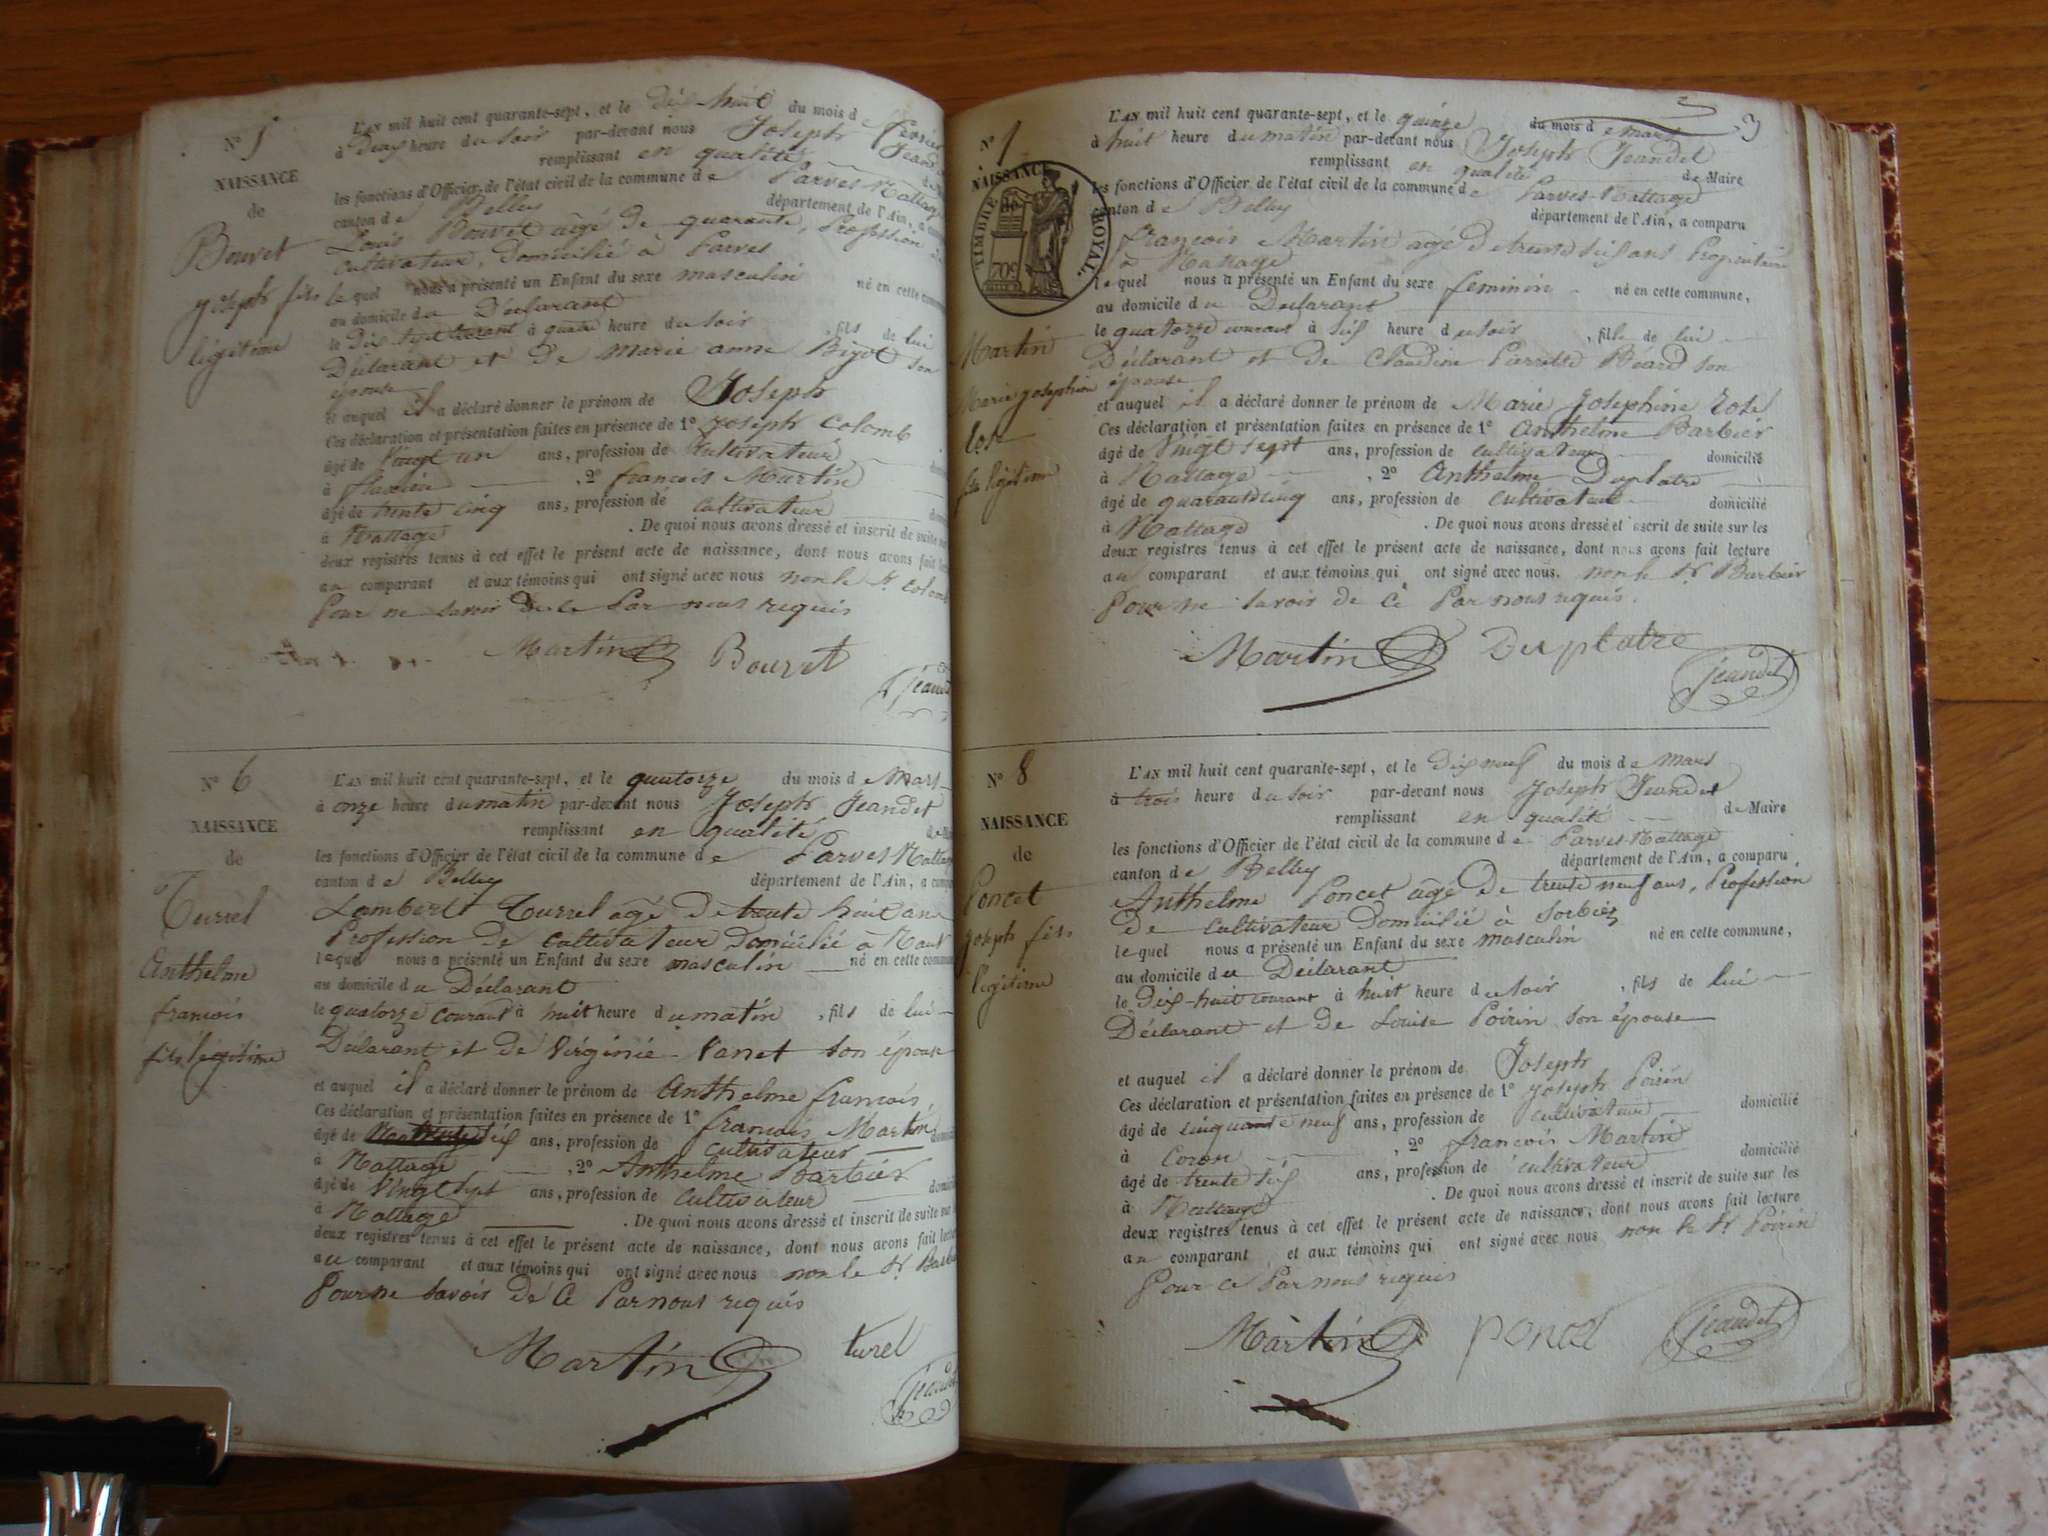 N° 5
NAISSANCE
de
Bouvet
joseph fils
légitime
L'AN mil huit cent quarante-sept, et le dix huit du mois de février
à deux heure du soir par-devant nous Joseph Jeandet
remplissant en qualité
les fonctions d'Officier de l'état civil de la commune de Parves-Nattage
canton de Belley département de l'Ain, a
Louis Bouvet agé de quarante, Profession de
cultivateur, Domicilié à Parves
lequel nous a présenté un Enfant du sexe masculin né en cette commune
au domicile du Déclarant
le dix sept courant à quatre heure du soir , fils de lui
Déclarant et de Marie anne Bigot son
épouse
et auquel il a déclaré donner le prénom de Joseph
Ces déclaration et présentation faites en présence de 1° joseph Colomb
âgé de Vingt un ans, profession de Cultivateur
à , 2° françois Martin
âgé de trente cinq ans, profession de cultivateur
à Nattage . De quoi nous avons dressé et inscrit de suite sur
deux registres tenus à cet effet le présent acte de naissance, dont nous avons fait
au comparant et aux témoins qui ont signé avec nous non le Sr. Colomb
Pour ne savoir de ce Par nous requis
Martin Bouvet
Jeandet
N° 6
NAISSANCE
de
Turrel
Anthelme
françois
fils légitime
L'AN mil huit cent quarante-sept, et le quatorze du mois de Mars
à onze heure du matin par-devant nous Joseph Jeandet
remplissant en qualité
les fonctions d'Officier de l'état civil de la commune de Parves Nattage
canton de Belley département de l'Ain, a
Lambert Turrel agé de trente huit ans
Profession de cultivateur Domicilié à
lequel nous a présenté un Enfant du sexe masculin né en cette commune
au domicile du Déclarant
le quatorze courant à huit heure du matin , fils de lui
Déclarant et de Virginie Vanet son épouse
et auquel il a déclaré donner le prénom de Anthelme françois
Ces déclaration et présentation faites en présence de 1° françois Martin
âgé de six ans, profession de cultivateur
à Nattage , 2° Anthelme Barbier
âgé de Vingt sept ans, profession de Cultivateur
à Nattage . De quoi nous avons dressé et inscrit de suite sur
deux registres tenus à cet effet le présent acte de naissance, dont nous avons fait lecture
au comparant et aux témoins qui ont signé avec nous non le Sr. Barbier
Pour ne savoir de ce Par nous requis
Martin turel
jeandet
3
N° 7
NAISSANCE
de
TIMBRE ROYAL
70c
Martin
Marie josephine
fille légitime
L'AN mil huit cent quarante-sept, et le quinze du mois de mars
à huit heure du matin par-devant nous Joseph Jeandet
remplissant en qualité de Maire
les fonctions d'Officier de l'état civil de la commune de Parves-Nattage
canton de Belley département de l'Ain, a comparu
françois Martin agé de trente six ans Propriétaire
à Nattage
lequel nous a présenté un Enfant du sexe feminin né en cette commune,
au domicile du Déclarant
le quatorze courant à six heure du soir , fille de lui
Déclarant et de Claudine Béard son
épouse
et auquel il a déclaré donner le prénom de Marie Josephine Rose
Ces déclaration et présentation faites en présence de 1° Anthelme Barbier
âgé de Vingt sept ans, profession de cultivateur domicilié
à Nattage , 2° Anthelme Duplatre
âgé de quarante cinq ans, profession de cultivateur domicilié
à Nattage . De quoi nous avons dressé et inscrit de suite sur les
deux registres tenus à cet effet le présent acte de naissance, dont nous avons fait lecture
au comparant et aux témoins qui ont signé avec nous. non le Sr Barbier
Pour ne savoir de ce Par nous requis.
Martin Duplatre
jeandet
N° 8
NAISSANCE
de
Poncet
joseph fils
légitime
L'AN mil huit cent quarante-sept, et le dix neuf du mois de Mars
à trois heure du soir par-devant nous Joseph Jeandet
remplissant en qualité de Maire
les fonctions d'Officier de l'état civil de la commune de Parves-Nattage
canton de Belley département de l'Ain, a comparu
Anthelme Poncet agé de trente neuf ans, Profession
de cultivateur Domicilié à Sorbier
lequel nous a présenté un Enfant du sexe masculin né en cette commune,
au domicile du Déclarant
le Dix-huit courant à huit heure du soir , fils de lui
Déclarant et de Louise Poirin son épouse
et auquel il a déclaré donner le prénom de Joseph
Ces déclaration et présentation faites en présence de 1° joseph Poirin
âgé de cinquante neuf ans, profession de cultivateur domicilié
à Coron , 2° françois Martin
âgé de trente six ans, profession de cultivateur domicilié
à Nattage . De quoi nous avons dressé et inscrit de suite sur les
deux registres tenus à cet effet le présent acte de naissance, dont nous avons fait lecture
au comparant et aux témoins qui ont signé avec nous non le Sr. Poirin
Pour ce Par nous requis
Martin poncet jeandet